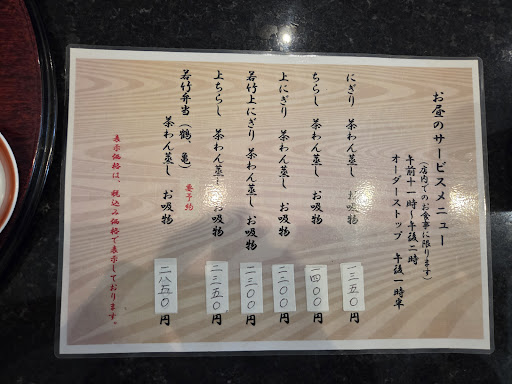 お昼のサービスメニュー
（店内でのお食事に限ります）
午前十一時～午後二時
オーダーストップ　午後一時半
にぎり　茶わん蒸し　お吸物　一三五〇円
ちらし　茶わん蒸し　お吸物　一四〇〇円
上にぎり　茶わん蒸し　お吸物　二二〇〇円
若竹上にぎり　茶わん蒸し　お吸物　二三〇〇円
上ちらし　茶わん蒸し　お吸物　二三五〇円
要予約
若竹弁当（鶴、亀）　茶わん蒸し　お吸物　二八五〇円
表示価格は、税込み価格で表示しております。